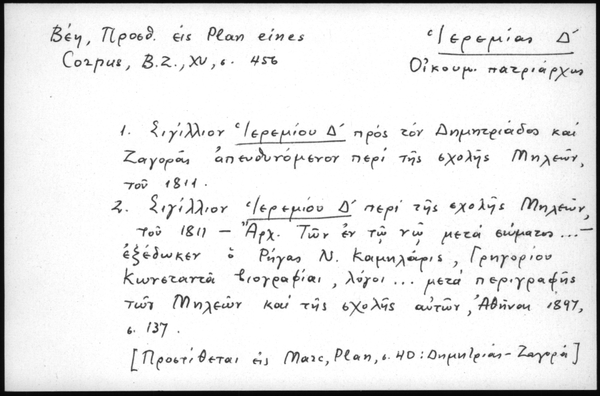 Βέη, Προσθ. εἰς Plan eines
Corpus, B.Z., XV, σ. 456
Ἱερεμίας Δ΄
Οἰκουμ. πατριάρχης
1. Σιγίλλιον Ἱερεμίου Δ΄ πρός τόν Δημητριάδος καί
Ζαγορᾶς ἀπευθυνόμενον περί τῆς σχολῆς Μηλεῶν,
τοῦ 1811.
2. Σιγίλλιον Ἱερεμίου Δ΄ περί τῆς σχολῆς Μηλεῶν,
τοῦ 1811 – Ἀρχ. Τῶν ἐν τῷ νῷ μετά σώματος... –
ἐξέδωκεν ὁ Ρήγας Ν. Καμηλάρις, Γρηγορίου
Κωνσταντᾶ βιογραφίαι, λόγοι... μετά περιγραφῆς
τῶν Μηλεῶν καί τῆς σχολῆς αὐτῶν, Ἀθῆναι 1897,
σ. 137.
[Προστίθεται εἰς Marc, Plan, σ. 40: Δημητριάς-Ζαγορά]